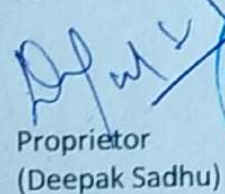 Proprietor
(Deepak Sadhu)